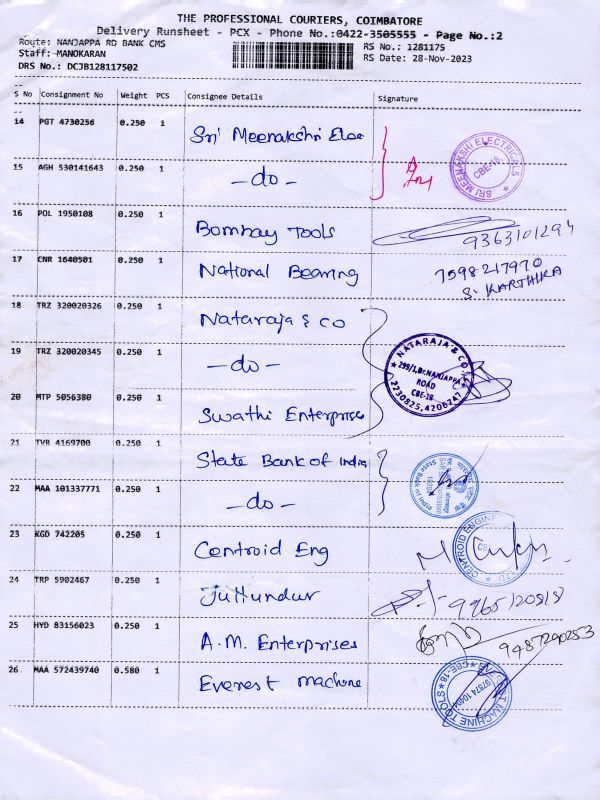 THE PROFESSIONAL COURIERS, COIMBATORE
Delivery Runsheet - PCX - Phone No.:0422-3505555 - Page No.:2
Route: NANJAPPA RD BANK CMS
RS No.: 1281175
Staff: MANOKARAN
RS Date: 28-Nov-2023
DRS No.: DCJB128117502
S No Consignment No Weight PCS Consignee Details Signature
14 PGT 4730256 0.250 1 Sri Meenakshri Elec
SRI MEENAKSHI ELECTRICALS CBE-18.
15 AGH 530141643 0.250 1 -do-
16 POL 1950108 0.250 1 Bombay Tools 9363101294
17 CNR 1640501 0.250 1 National Bearing 7598217970
S. KARTHIKA
18 TRZ 320020326 0.250 1 Nataraja & co
19 TRZ 320020345 0.250 1 -do-
NATARAJA & CO
299/1, Dr. NANJAPPA
ROAD
CBE-18
2230825, 4206747
20 MTP 5056380 0.250 1 Swathi Enterprises
21 TVR 4169700 0.250 1 State Bank of India
State Bank of India
22 MAA 101337771 0.250 1 -do-
23 KGD 742205 0.250 1 Centroid Eng
CENTROID ENGINE
24 TRP 5902467 0.250 1 Jullundur 9965120818
25 HYD 83156023 0.250 1 A.M. Enterprises 9487290253
26 MAA 572439740 0.580 1 Everest machine
MACHINE TOOLS CBE-18